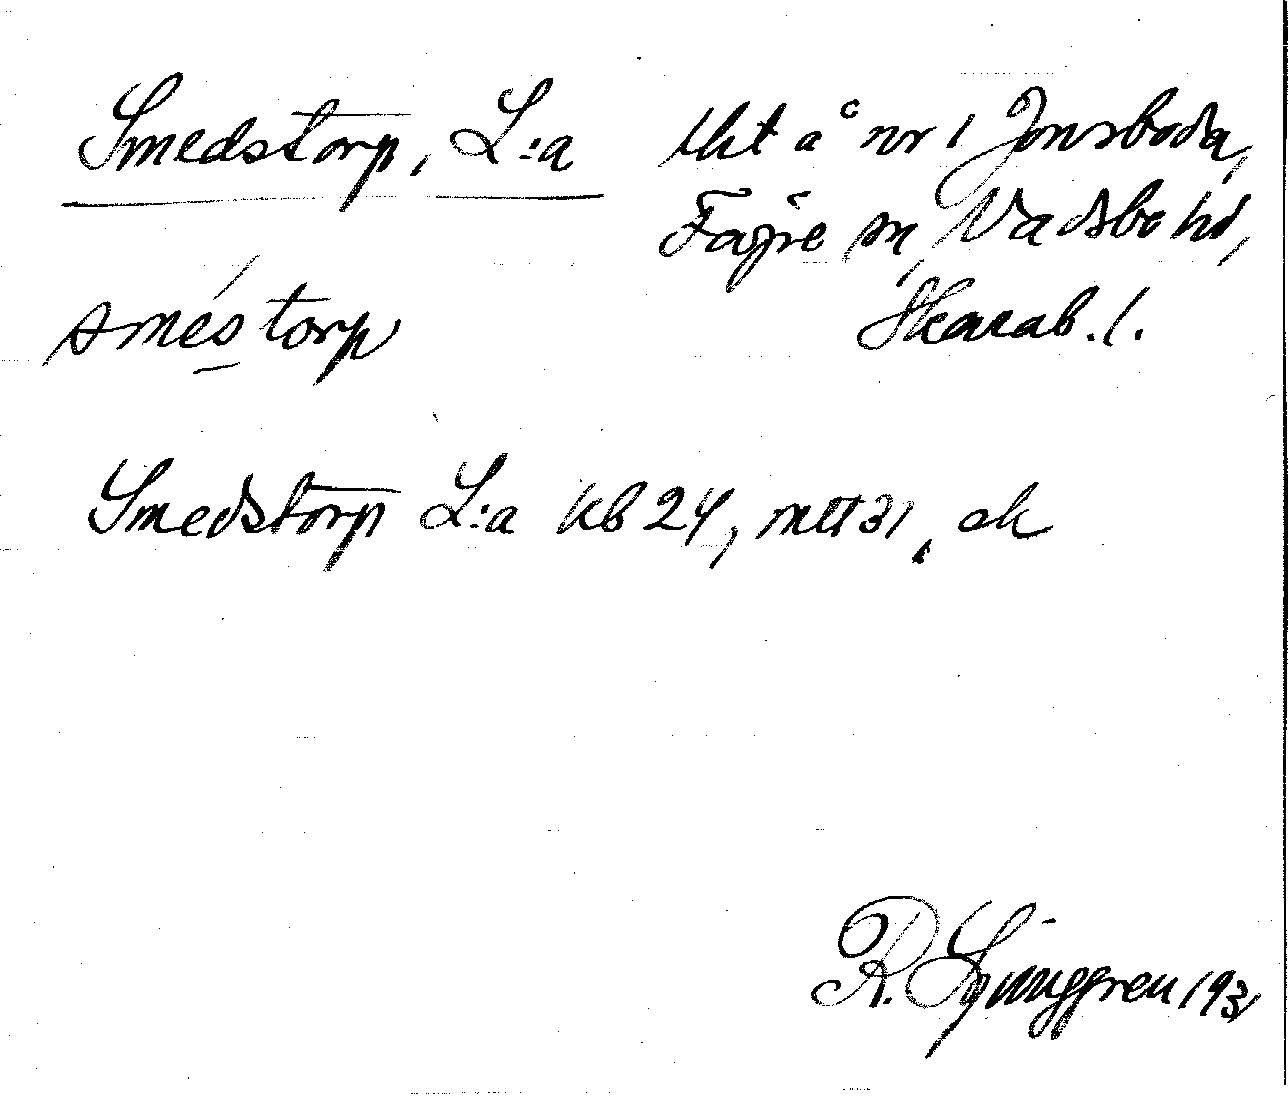 Smedstorp, L:a
lht å nr 1 Jonsboda,
Fägre sn, Vadsbo hd,
Skarab. l.
smés torp
Smedstorp L:a kb 24, mtt 31, ek
R. Ljunggren 1931